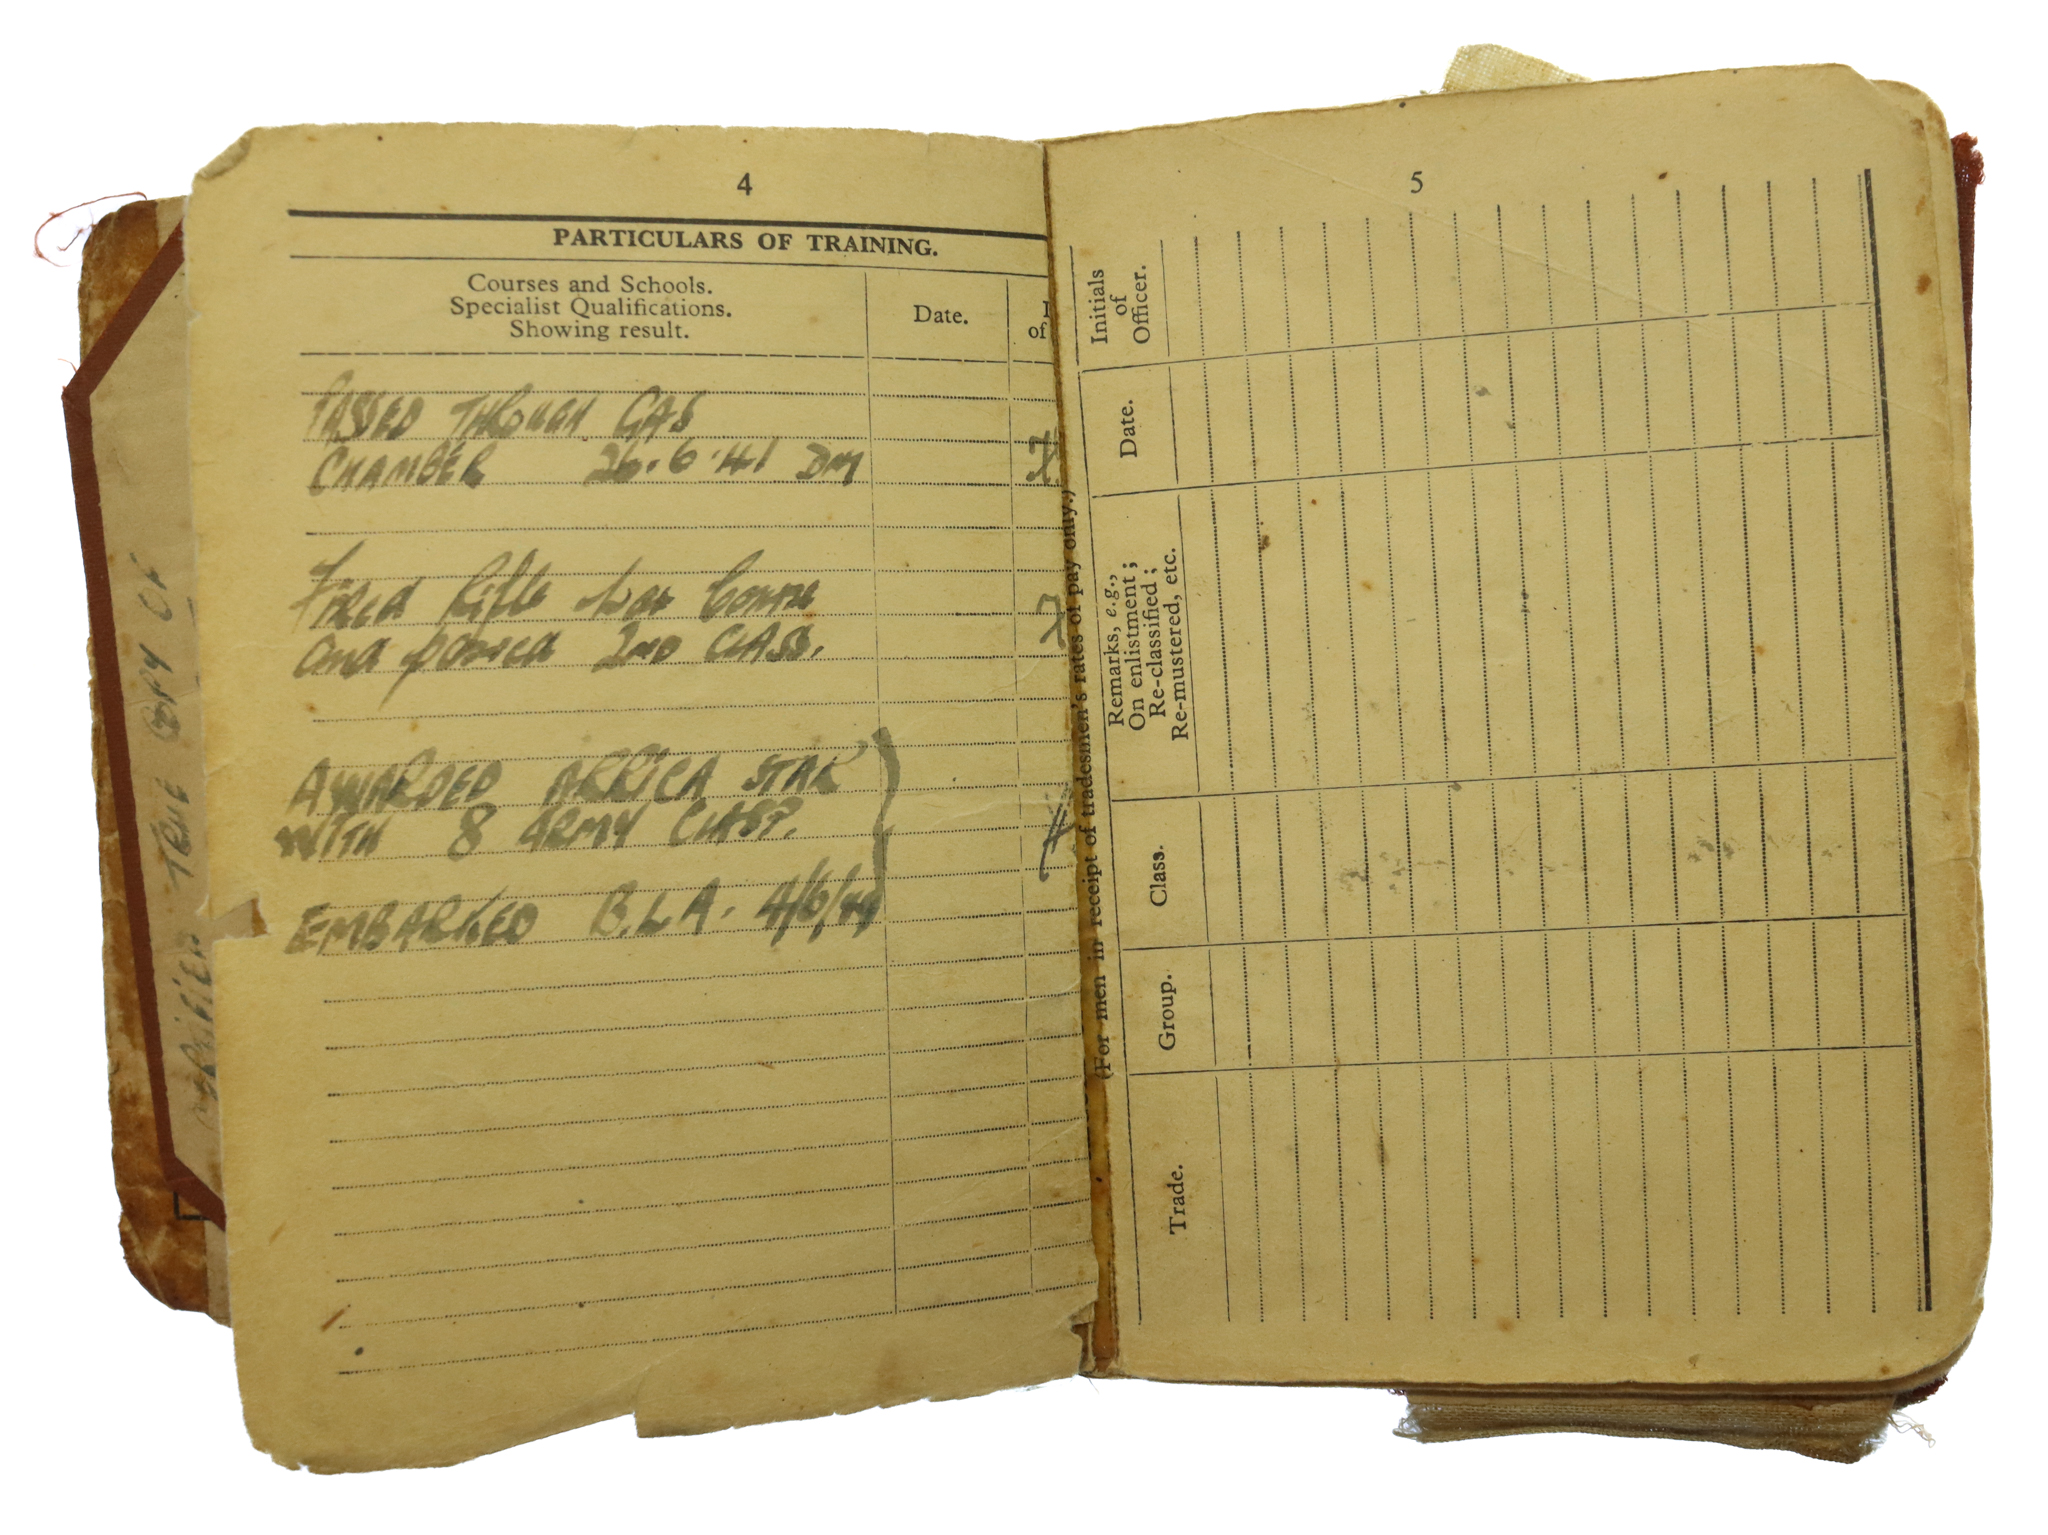 TRUE COPY OF
4
PARTICULARS OF TRAINING.
Courses and Schools.
Specialist Qualifications.
Showing result.
Date.
of
PASSED THROUGH GAS
CHAMBER 26.6.41 DM
Fired Rifle War Course
and passed 2ND CLASS.
AWARDED AFRICA STAR
WITH 8 ARMY CLASP.
EMBARKED B.L.A. 4/6/44
5
(For men in receipt of tradesmen's rates of pay only.)
Trade.
Group.
Class.
Remarks, e.g.,
On enlistment;
Re-classified;
Re-mustered, etc.
Date.
Initials
of
Officer.